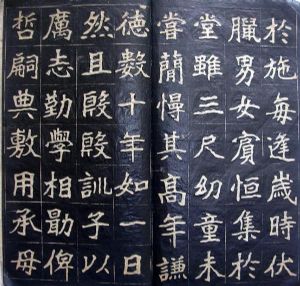 於施每逢歲時伏
臘男女賓恒集於
堂雖三尺幼童未
嘗簡慢其高年謙
德數十年如一日
然且殷殷訓子以
厲志勤學相勖俾
哲嗣典敷用承母